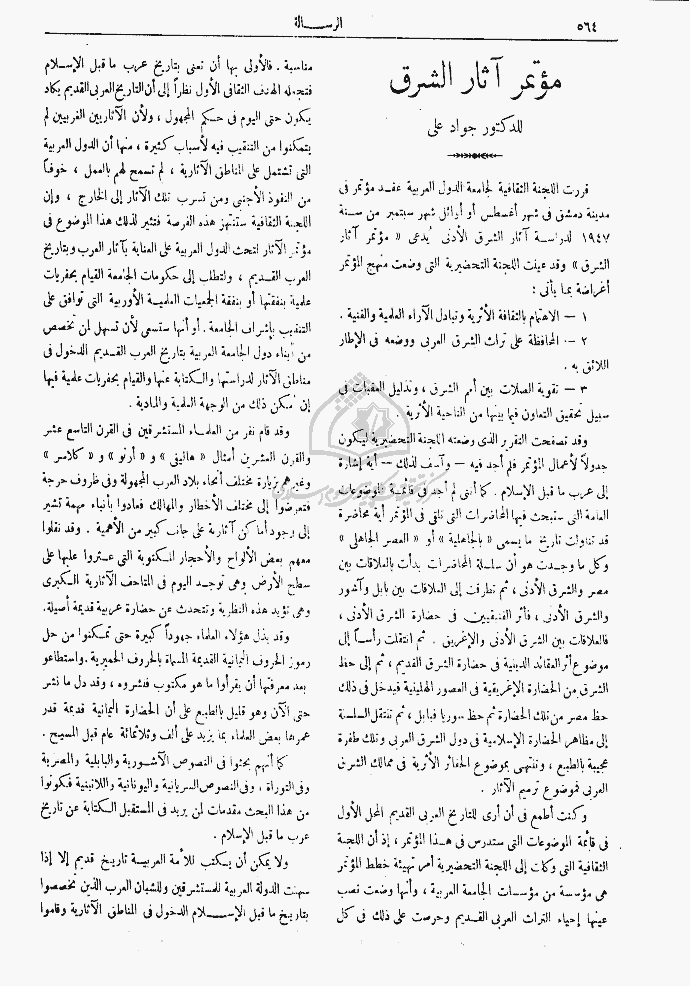 ٥٦٤
الرســالة
مؤتمر آثار الشرق
للدكتور جواد علي
قررت اللجنة الثقافية لجامعة الدول العربية عقد مؤتمر فى
مدينة دمشق فى شهر أغسطس أو أوائل شهر سبتمبر من سنة
١٩٤٧ لدراسة آثار الشرق الأدنى يُدعى « مؤتمر آثار
الشرق » وقد عينت اللجنة التحضيرية التى وضعت منهج المؤتمر
أغراضة بما يأتى :
١ — الاهتمام بالثقافة الأثرية وتبادل الآراء العلمية والفنية .
٢ — المحافظة على تراث الشرق العربى ووضعه فى الإطار
اللائق به .
٣ — تقوية الصلات بين أمم الشرق ، وتذليل العقبات فى
سبيل تحقيق التعاون فيما بينها من الناحية الأثرية .
وقد تصفحت التقرير الذى وضعته اللجنة التحضيرية ليكون
جدولاً لأعمال المؤتمر فلم أجد فيه — وآسف لذلك — أية إشارة
إلى عرب ما قبل الإسلام . كما أنى لم أجد فى قائمة الموضوعات
العامة التى ستبحث فيها المحاضرات التى تلقى فى المؤتمر أية محاضرة
قد تناولت تاريخ ما يسمى « بالجاهلية » أو « العصر الجاهلى »
وكل ما وجدت هو أن سلسلة المحاضرات بدأت بالعلاقات بين
مصر والشرق الأدنى ، ثم تطرقت إلى العلاقات بين بابل وآشور
والشرق الأدنى ، فأثر الفنيقيين فى حضارة الشرق الأدنى ،
فالعلاقات بين الشرق الأدنى والإغريق . ثم انتقلت رأســاً إلى
موضوع أثر العقائد الدينية فى حضارة الشرق القديم ، ثم إلى حظ
الشرق من الحضارة الإغريقية فى العصور الهلينية فيدخل فى ذلك
حظ مصر من تلك الحضارة ثم حظ سوريا فبابل ، ثم تنتقل السلسلة
إلى مظاهر الحضارة الإسلامية فى دول الشرق العربى وتلك طفرة
عجيبة بالطبع ، وتنتهى بموضوع الحفائر الأثرية فى ممالك الشرق
العربى فموضوع ترميم الآثار .
وكنت أطمع فى أن أرى للتاريخ العربى القديم المحل الأول
فى قائمة الموضوعات التى ستدرس فى هــذا المؤتمر ، إذ أن اللجنة
الثقافية التى وكلت إلى اللجنة التحضيرية أمر تهيئة خطط المؤتمر
هى مؤسسة من مؤسسات الجامعة العربية ، وأنها وضعت نصب
عينها إحياء التراث العربى القـديم وحرصت على ذلك فى كل
مناسبة . فالأولى بها أن تعنى بتاريخ عرب ما قبل الإســلام
فتجعله الهدف الثقافى الأول نظراً إلى أن التاريخ العربى القديم يكاد
يكون حتى اليوم فى حـكم المجهول ، ولأن الآثاريين الغربيين لم
يتمكنوا من التنقيب فيه لأسباب كثيرة ، منها أن الدول العربية
التى تشتمل على المناطق الآثارية ، لم تسمح لهم بالعمل ، خوفاً
من النفوذ الأجنبى ومن تسرب تلك الآثار إلى الخارج ، وإن
اللجنة الثقافية ستنتهز هذه الفرصة فتثير لذلك هذا الموضوع فى
مؤتمر الآثار لتحث الدول العربية على العناية بآثار العرب وبتاريخ
العرب القـديم ، ولتطلب إلى حكومات الجامعة القيام بحفريات
علمية بنفقتها أو بنفقة الجمعيات العلميـة الأوربية التى توافق على
التنقيب بإشراف الجامعة . أو أنها ستسعى لأن تسهل لمن تخصص
من أبناء دول الجامعة العربية بتاريخ العرب القـديم الدخول فى
مناطق الآثار لدراستها والـكتابة عنها والقيام بحفريات علمية فيها
إن أمكن ذلك من الوجهة العلمية والمادية .
وقد قام نفر من العلمـاء المستشرقين فى القرن التاسع عشر
والقرن العشرين أمثال « هاليفى » و « أرنو » و « كلاسر »
وغيرهم بزيارة مختلف أنحاء بلاد العرب المجهولة وفى ظروف حرجة
فتعرضوا إلى مختلف الأخطار والمهالك فعادوا بأنباء مهمة تشير
إلى وجود أماكن آثارية على جانب كبير من الأهمية . وقد نقلوا
معهم بعض الألواح والأحجار المـكتوبة التى عـثروا عليها على
سطح الأرض وهى توجـد اليوم فى المتاحف الآثارية الـكبرى
وهى تؤيد هذه النظرية وتتحدث عن حضارة عربية قديمة أصيلة.
وقد بذل هؤلاء العلماء جهوداً كبيرة حتى تمـكنوا من حل
رموز الحروف اليمانية القديمة المسماة بالحروف الحميرية . واستطاعو
بعد معرفتها أن يقرأوا ما هو مكتوب فنشروه ، وقد دل ما نشر
حتى الآن وهو قليل بالطبع على أن الحضارة اليمانية قديمة قدر
عمرها بعض العلماء بما يزيد على ألف وثلاثمائة عام قبل المسيح .
كما أنهم بحثوا فى النصوص الآشـورية والبابلية والمصرية
وفى التوراة ، وفى النصوص السريانية واليونانية واللاتينية فـكونوا
من هذا البحث مقدمات لمن يريد فى المستقبل الـكتابة عن تاريخ
عرب ما قبل الإسلام .
ولا يمكن أن يـكتب للأمة العربيـة تاريخ قديم إلا إذا
سهلت الدولة العربية للمستشرقين وللشبان العرب الذين تخصصوا
بتاريـخ ما قبل الإســـلام الدخول فى المناطق الآثارية وقاموا